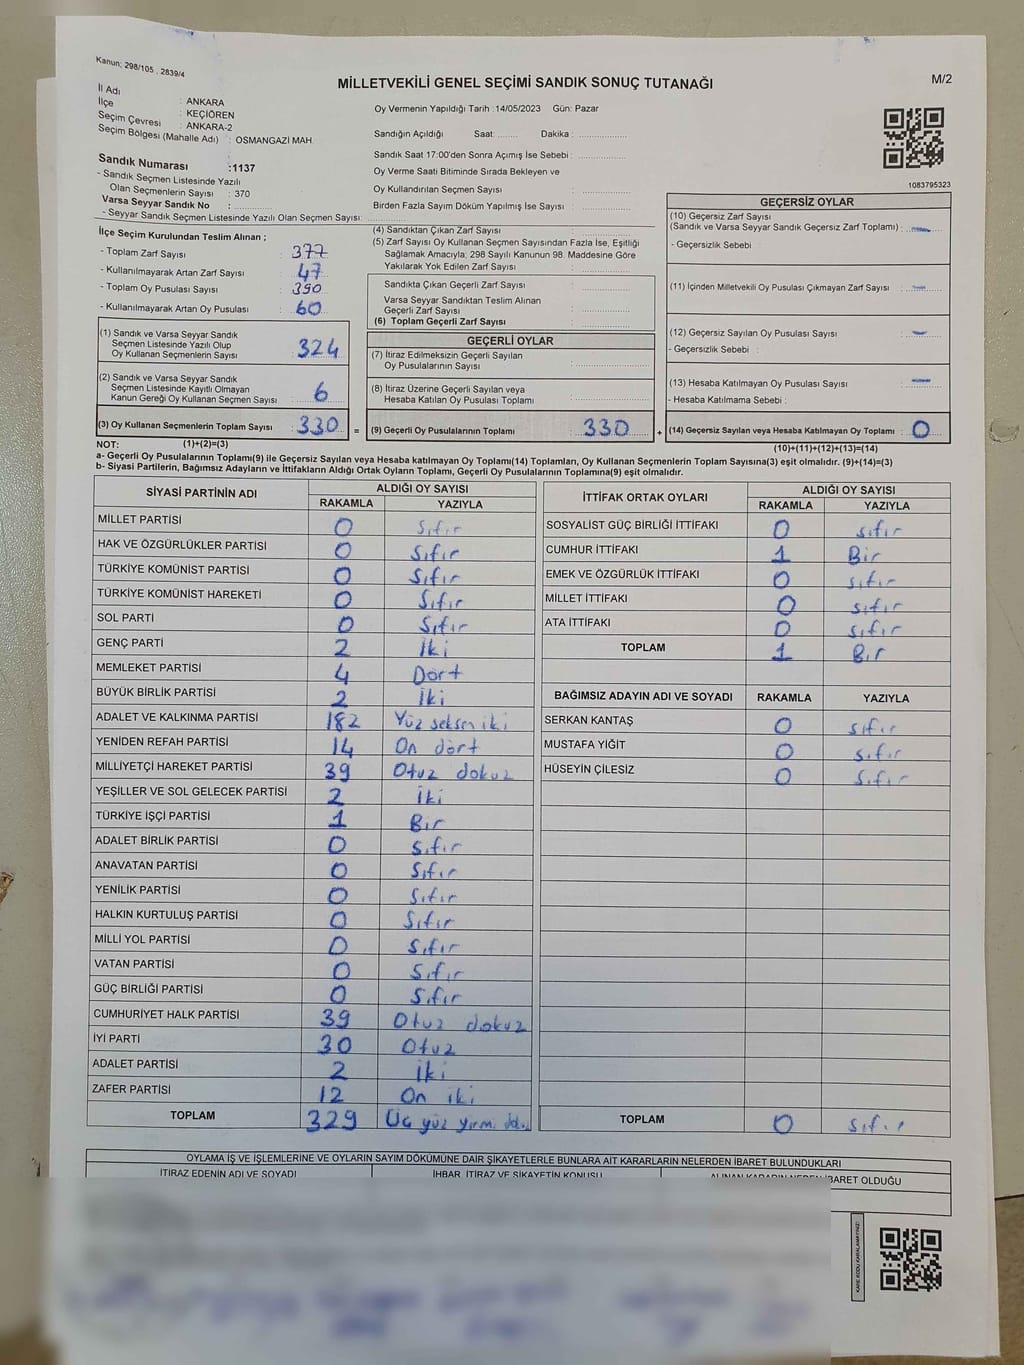 Kanun; 298/105 , 2839/4
MİLLETVEKİLİ GENEL SEÇİMİ SANDIK SONUÇ TUTANAĞI
M/2
İl Adı : ANKARA
İlçe : KEÇİÖREN
Seçim Çevresi : ANKARA-2
Seçim Bölgesi (Mahalle Adı) : OSMANGAZİ MAH.
Oy Vermenin Yapıldığı Tarih : 14/05/2023 Gün: Pazar
Sandığın Açıldığı Saat: ........ Dakika : ................
Sandık Saat 17:00'den Sonra Açımış İse Sebebi : ................
Oy Verme Saati Bitiminde Sırada Bekleyen ve
Oy Kullandırılan Seçmen Sayısı : ................
Birden Fazla Sayım Döküm Yapılmış İse Sayısı : ................
Sandık Numarası :1137
- Sandık Seçmen Listesinde Yazılı
Olan Seçmenlerin Sayısı : 370
Varsa Seyyar Sandık No : ................
- Seyyar Sandık Seçmen Listesinde Yazılı Olan Seçmen Sayısı: ................
1083795323
İlçe Seçim Kurulundan Teslim Alınan ;
- Toplam Zarf Sayısı : 377
- Kullanılmayarak Artan Zarf Sayısı : 47
- Toplam Oy Pusulası Sayısı : 390
- Kullanılmayarak Artan Oy Pusulası : 60
(1) Sandık ve Varsa Seyyar Sandık
Seçmen Listesinde Yazılı Olup
Oy Kullanan Seçmenlerin Sayısı : 324
(2) Sandık ve Varsa Seyyar Sandık
Seçmen Listesinde Kayıtlı Olmayan
Kanun Gereği Oy Kullanan Seçmen Sayısı : 6
(3) Oy Kullanan Seçmenlerin Toplam Sayısı : 330
(4) Sandıktan Çıkan Zarf Sayısı : ................
(5) Zarf Sayısı Oy Kullanan Seçmen Sayısından Fazla İse, Eşitliği
Sağlamak Amacıyla; 298 Sayılı Kanunun 98. Maddesine Göre
Yakılarak Yok Edilen Zarf Sayısı : ................
Sandıkta Çıkan Geçerli Zarf Sayısı : ................
Varsa Seyyar Sandıktan Teslim Alınan
Geçerli Zarf Sayısı : ................
(6) Toplam Geçerli Zarf Sayısı : ................
GEÇERLİ OYLAR
(7) İtiraz Edilmeksizin Geçerli Sayılan
Oy Pusulalarının Sayısı : ................
(8) İtiraz Üzerine Geçerli Sayılan veya
Hesaba Katılan Oy Pusulası Toplamı : ................
= (9) Geçerli Oy Pusulalarının Toplamı : 330
GEÇERSİZ OYLAR
(10) Geçersiz Zarf Sayısı
(Sandık ve Varsa Seyyar Sandık Geçersiz Zarf Toplamı) : —
- Geçersizlik Sebebi :
(11) İçinden Milletvekili Oy Pusulası Çıkmayan Zarf Sayısı : —
(12) Geçersiz Sayılan Oy Pusulası Sayısı : —
- Geçersizlik Sebebi :
(13) Hesaba Katılmayan Oy Pusulası Sayısı : —
- Hesaba Katılmama Sebebi :
+ (14) Geçersiz Sayılan veya Hesaba Katılmayan Oy Toplamı : 0
NOT: (1)+(2)=(3)
(10)+(11)+(12)+(13)=(14)
a- Geçerli Oy Pusulalarının Toplamı(9) ile Geçersiz Sayılan veya Hesaba katılmayan Oy Toplamı(14) Toplamları, Oy Kullanan Seçmenlerin Toplam Sayısına(3) eşit olmalıdır. (9)+(14)=(3)
b- Siyasi Partilerin, Bağımsız Adayların ve İttifakların Aldığı Ortak Oyların Toplamı, Geçerli Oy Pusulalarının Toplamına(9) eşit olmalıdır.
SİYASİ PARTİNİN ADI
ALDIĞI OY SAYISI
RAKAMLA YAZIYLA
MİLLET PARTİSİ 0 Sıfır
HAK VE ÖZGÜRLÜKLER PARTİSİ 0 Sıfır
TÜRKİYE KOMÜNİST PARTİSİ 0 Sıfır
TÜRKİYE KOMÜNİST HAREKETİ 0 Sıfır
SOL PARTİ 0 Sıfır
GENÇ PARTİ 2 İki
MEMLEKET PARTİSİ 4 Dört
BÜYÜK BİRLİK PARTİSİ 2 İki
ADALET VE KALKINMA PARTİSİ 182 Yüz seksen iki
YENİDEN REFAH PARTİSİ 14 On dört
MİLLİYETÇİ HAREKET PARTİSİ 39 Otuz dokuz
YEŞİLLER VE SOL GELECEK PARTİSİ 2 İki
TÜRKİYE İŞÇİ PARTİSİ 1 Bir
ADALET BİRLİK PARTİSİ 0 Sıfır
ANAVATAN PARTİSİ 0 Sıfır
YENİLİK PARTİSİ 0 Sıfır
HALKIN KURTULUŞ PARTİSİ 0 Sıfır
MİLLİ YOL PARTİSİ 0 Sıfır
VATAN PARTİSİ 0 Sıfır
GÜÇ BİRLİĞİ PARTİSİ 0 Sıfır
CUMHURİYET HALK PARTİSİ 39 Otuz dokuz
İYİ PARTİ 30 Otuz
ADALET PARTİSİ 2 İki
ZAFER PARTİSİ 12 On iki
TOPLAM 329 Üç yüz yirmi
İTTİFAK ORTAK OYLARI
ALDIĞI OY SAYISI
RAKAMLA YAZIYLA
SOSYALİST GÜÇ BİRLİĞİ İTTİFAKI 0 sıfır
CUMHUR İTTİFAKI 1 Bir
EMEK VE ÖZGÜRLÜK İTTİFAKI 0 sıfır
MİLLET İTTİFAKI 0 sıfır
ATA İTTİFAKI 0 sıfır
TOPLAM 1 Bir
BAĞIMSIZ ADAYIN ADI VE SOYADI RAKAMLA YAZIYLA
SERKAN KANTAŞ 0 sıfır
MUSTAFA YİĞİT 0 sıfır
HÜSEYİN ÇİLESİZ 0 sıfır
TOPLAM 0 sıfır
OYLAMA İŞ VE İŞLEMLERİNE VE OYLARIN SAYIM DÖKÜMÜNE DAİR ŞİKAYETLERLE BUNLARA AİT KARARLARIN NELERDEN İBARET BULUNDUKLARI
İTİRAZ EDENİN ADI VE SOYADI
İHBAR, İTİRAZ VE ŞİKAYETİN KONUSU
ALINAN KARARIN NEDEN İBARET OLDUĞU
KARE KODU KARALAMAYINIZ!